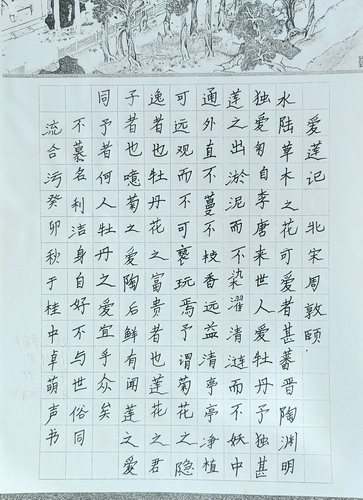 爱莲记 北宋周敦颐
水陆草木之花可爱者甚蕃晋陶渊明
独爱匊自李唐来世人爱牡丹予独甚
莲之出淤泥而不染濯清涟而不妖中
通外直不蔓不枝香远益清亭亭净植
可远观而不可亵玩焉予谓菊花之隐
逸者也牡丹花之富贵者也莲花之君
子者也噫菊之爱陶后鲜有闻莲之爱
同予者何人牡丹之爱宜乎众矣
不慕名利洁身自好不与世俗同
流合污癸卯秋于桂中卓萌声书